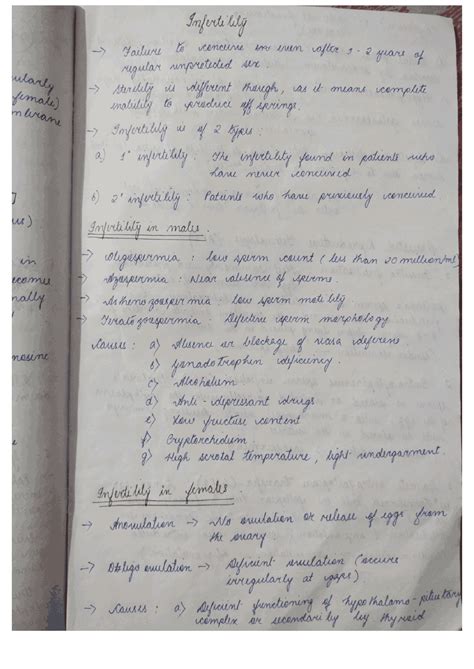 ularly
female)
mbrane
us)
in
ecomes
nally
nosine
Infertility
→ Failure to conceive in even after 1-2 years of
regular unprotected sex.
→ Sterility is different though, as it means complete
inability to produce offsprings.
→ Infertility is of 2 types:
a) 1° infertility: The infertility found in patients who
have never conceived
b) 2° infertility: Patients who have previously conceived.
Infertility in males.
→ Oligospermia: low sperm count (less than 20 million/ml)
→ Azospermia: Near absence of sperms.
→ Asthenozoospermia: low sperm motility
→ Teratozoospermia: Defective sperm morphology
Causes: a) Absence or blockage of vasa deferens
b) Gonadotrophin deficiency.
c) Alcoholism
d) Anti-depressant drugs
e) Low fructose content
f) Cryptorchidism
g) High scrotal temperature, tight undergarment.
Infertility in females.
→ Anovulation → No ovulation or release of eggs from
the ovary.
→ Obligo ovulation → Deficient ovulation (occurs
irregularly at gaps).
→ Causes: a) Deficient functioning of hypothalamo-pituitary
complex or secondarily by thyroid